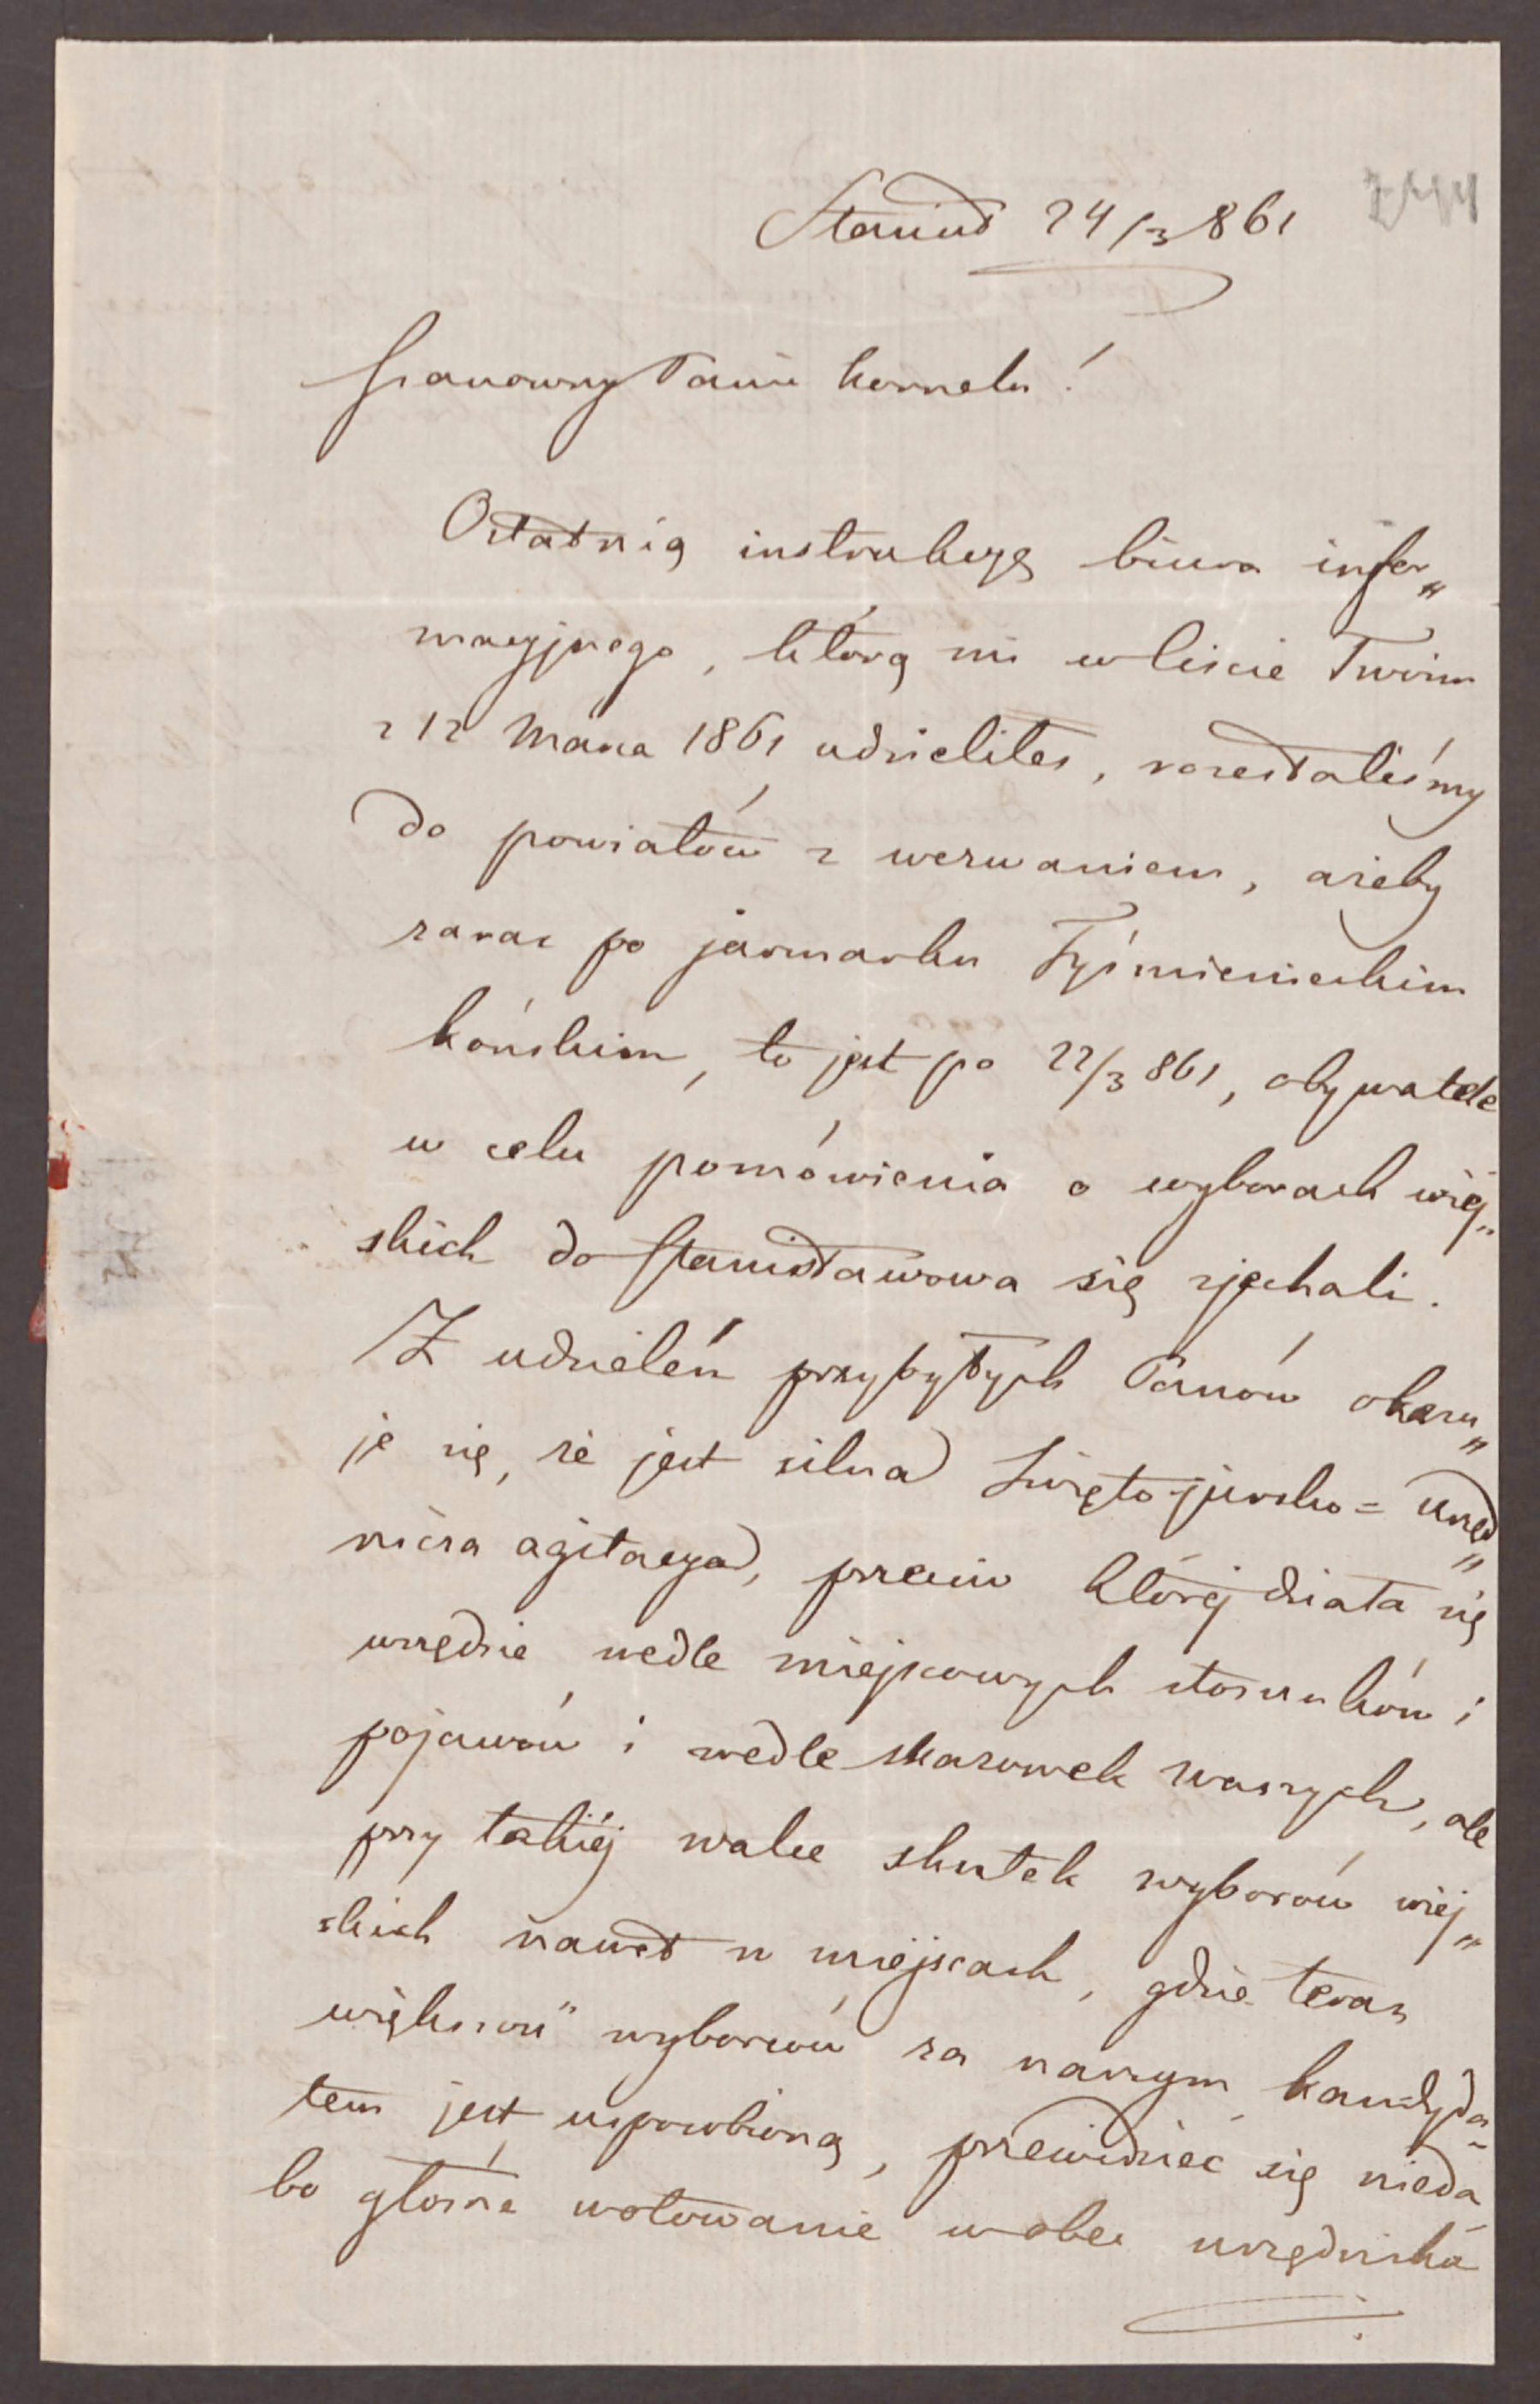 Stanisł 24/3 861
Szanowny Panie Kornelu!
Ostatnią instrukcyę biura infor„
macyjnego, którą mi w liście Twoim
z 12 Marca 1861 udzieliłeś, rozesłaliśmy
do powiatów z wezwaniem, ażeby
zaraz po jarmarku Tyśmienieckim
końskim, to jest po 22/3 861, obywatele
w celu pomówienia o wyborach wiej„
skich do Stanisławowa się zjechali.
Z udzieleń przybyłych Panów okazu„
je się, że jest silna Święto-jursko = urzęd„
nicza agitacya, przeciw której działa się
wszędzie wedle miejscowych stosunków i
pojawów i wedle skazowek waszych, ale
przy takiéj walce skutek wyborów wiej„
skich nawet w miejscach, gdzie teraz
większość wyborców za naszym kandyda-
tem jest usposobioną, przewidzieć się nieda
bo głośne wotowanie wobec urzędnika